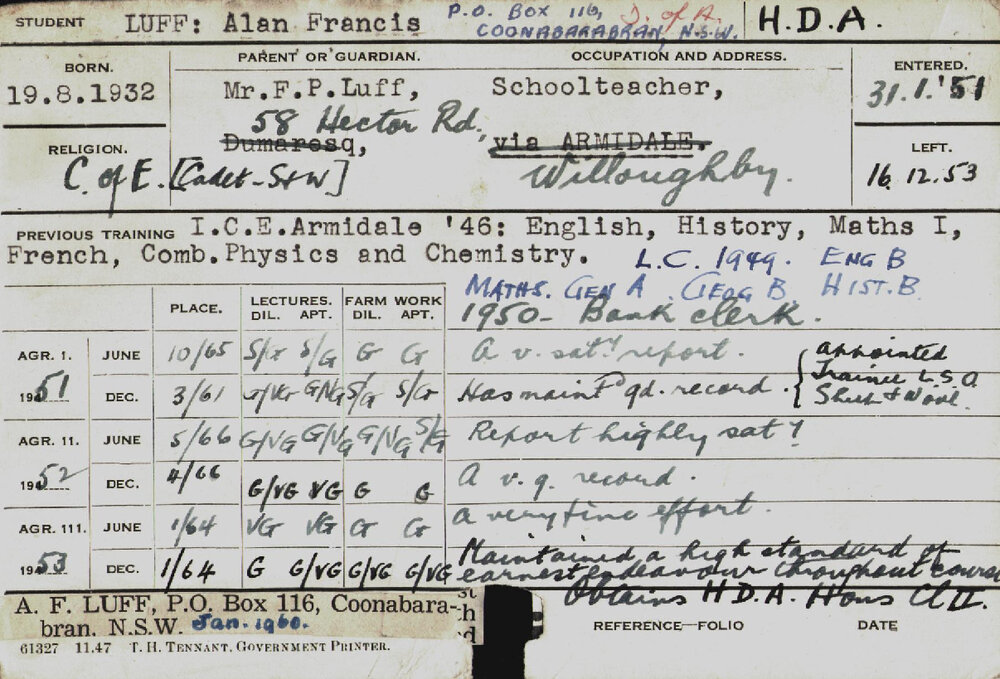 STUDENT LUFF: Alan Francis P.O. Box 116, D. of A. H.D.A.
COONABARABRAN, N.S.W.
BORN. PARENT OR GUARDIAN. OCCUPATION AND ADDRESS. ENTERED.
19.8.1932 Mr.F.P.Luff, Schoolteacher, 31.1.'51
58 Hector Rd,
RELIGION. Dumaresq, via ARMIDALE. LEFT.
C. of E. [Cadet-S+W] Willoughby. 16.12.53
PREVIOUS TRAINING I.C.E.Armidale '46: English, History, Maths I,
French, Comb.Physics and Chemistry. L.C. 1949. ENG B
MATHS. GEN A GEOG B. HIST.B
PLACE. LECTURES. FARM WORK 1950- Bank clerk.
DIL. APT. DIL. APT.
AGR. 1. JUNE 10/65 S/G S/G G G A v. sat! report. appointed
1951 DEC. 3/61 G/VG G/VG S/G S/G Has maintd gd. record. Trainee L.S.O.
Sheep + Wool.
AGR. 11. JUNE 5/66 G/VG G/VG G/VG S/G Report highly sat!
1952 DEC. 4/66 G/VG VG G G A v. g. record.
AGR. 111. JUNE 1/64 VG VG G G A very fine effort.
1953 DEC. 1/64 G G/VG G/VG G/VG Maintained a high standard of
earnest endeavour throughout course
Obtains H.D.A. Hons Cl II.
A. F. LUFF, P.O. Box 116, Coonabara-
bran, N.S.W. Jan. 1960.
REFERENCE—FOLIO DATE
61327 11.47 T. H. TENNANT, GOVERNMENT PRINTER.